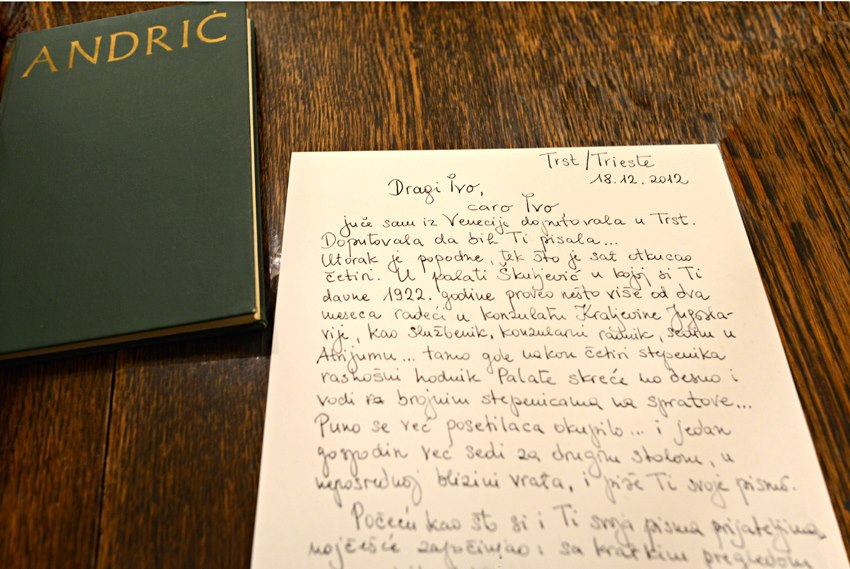 ANDRIĆ
Trst/Trieste
18.12.2012
Dragi Ivo,
caro Ivo
juče sam iz Venecije doputovala u Trst.
Doputovala da bih Ti pisala...
Utorak je popodne, tek što je sat otkucao
četiri. U palati Škuljević u kojoj si Ti
davne 1922. godine proveo nešto više od dva
meseca radeći u konzulatu Kraljevine Jugosla-
vije, kao službenik, konzularni radnik, sedim u
Atrijumu... tamo gde nakon četiri stepenika
raskošni hodnik Palate skreće na desno i
vodi ka brojnim stepenicama na spratove...
Puno se već posetilaca okupilo... i jedan
gospodin već sedi za drugim stolom, u
neposrednoj blizini vrata, i piše Ti svoje pismo.
Počeću kao što si i Ti svoja pisma prijateljima
najčešće započinjao: sa kratkim pregledom